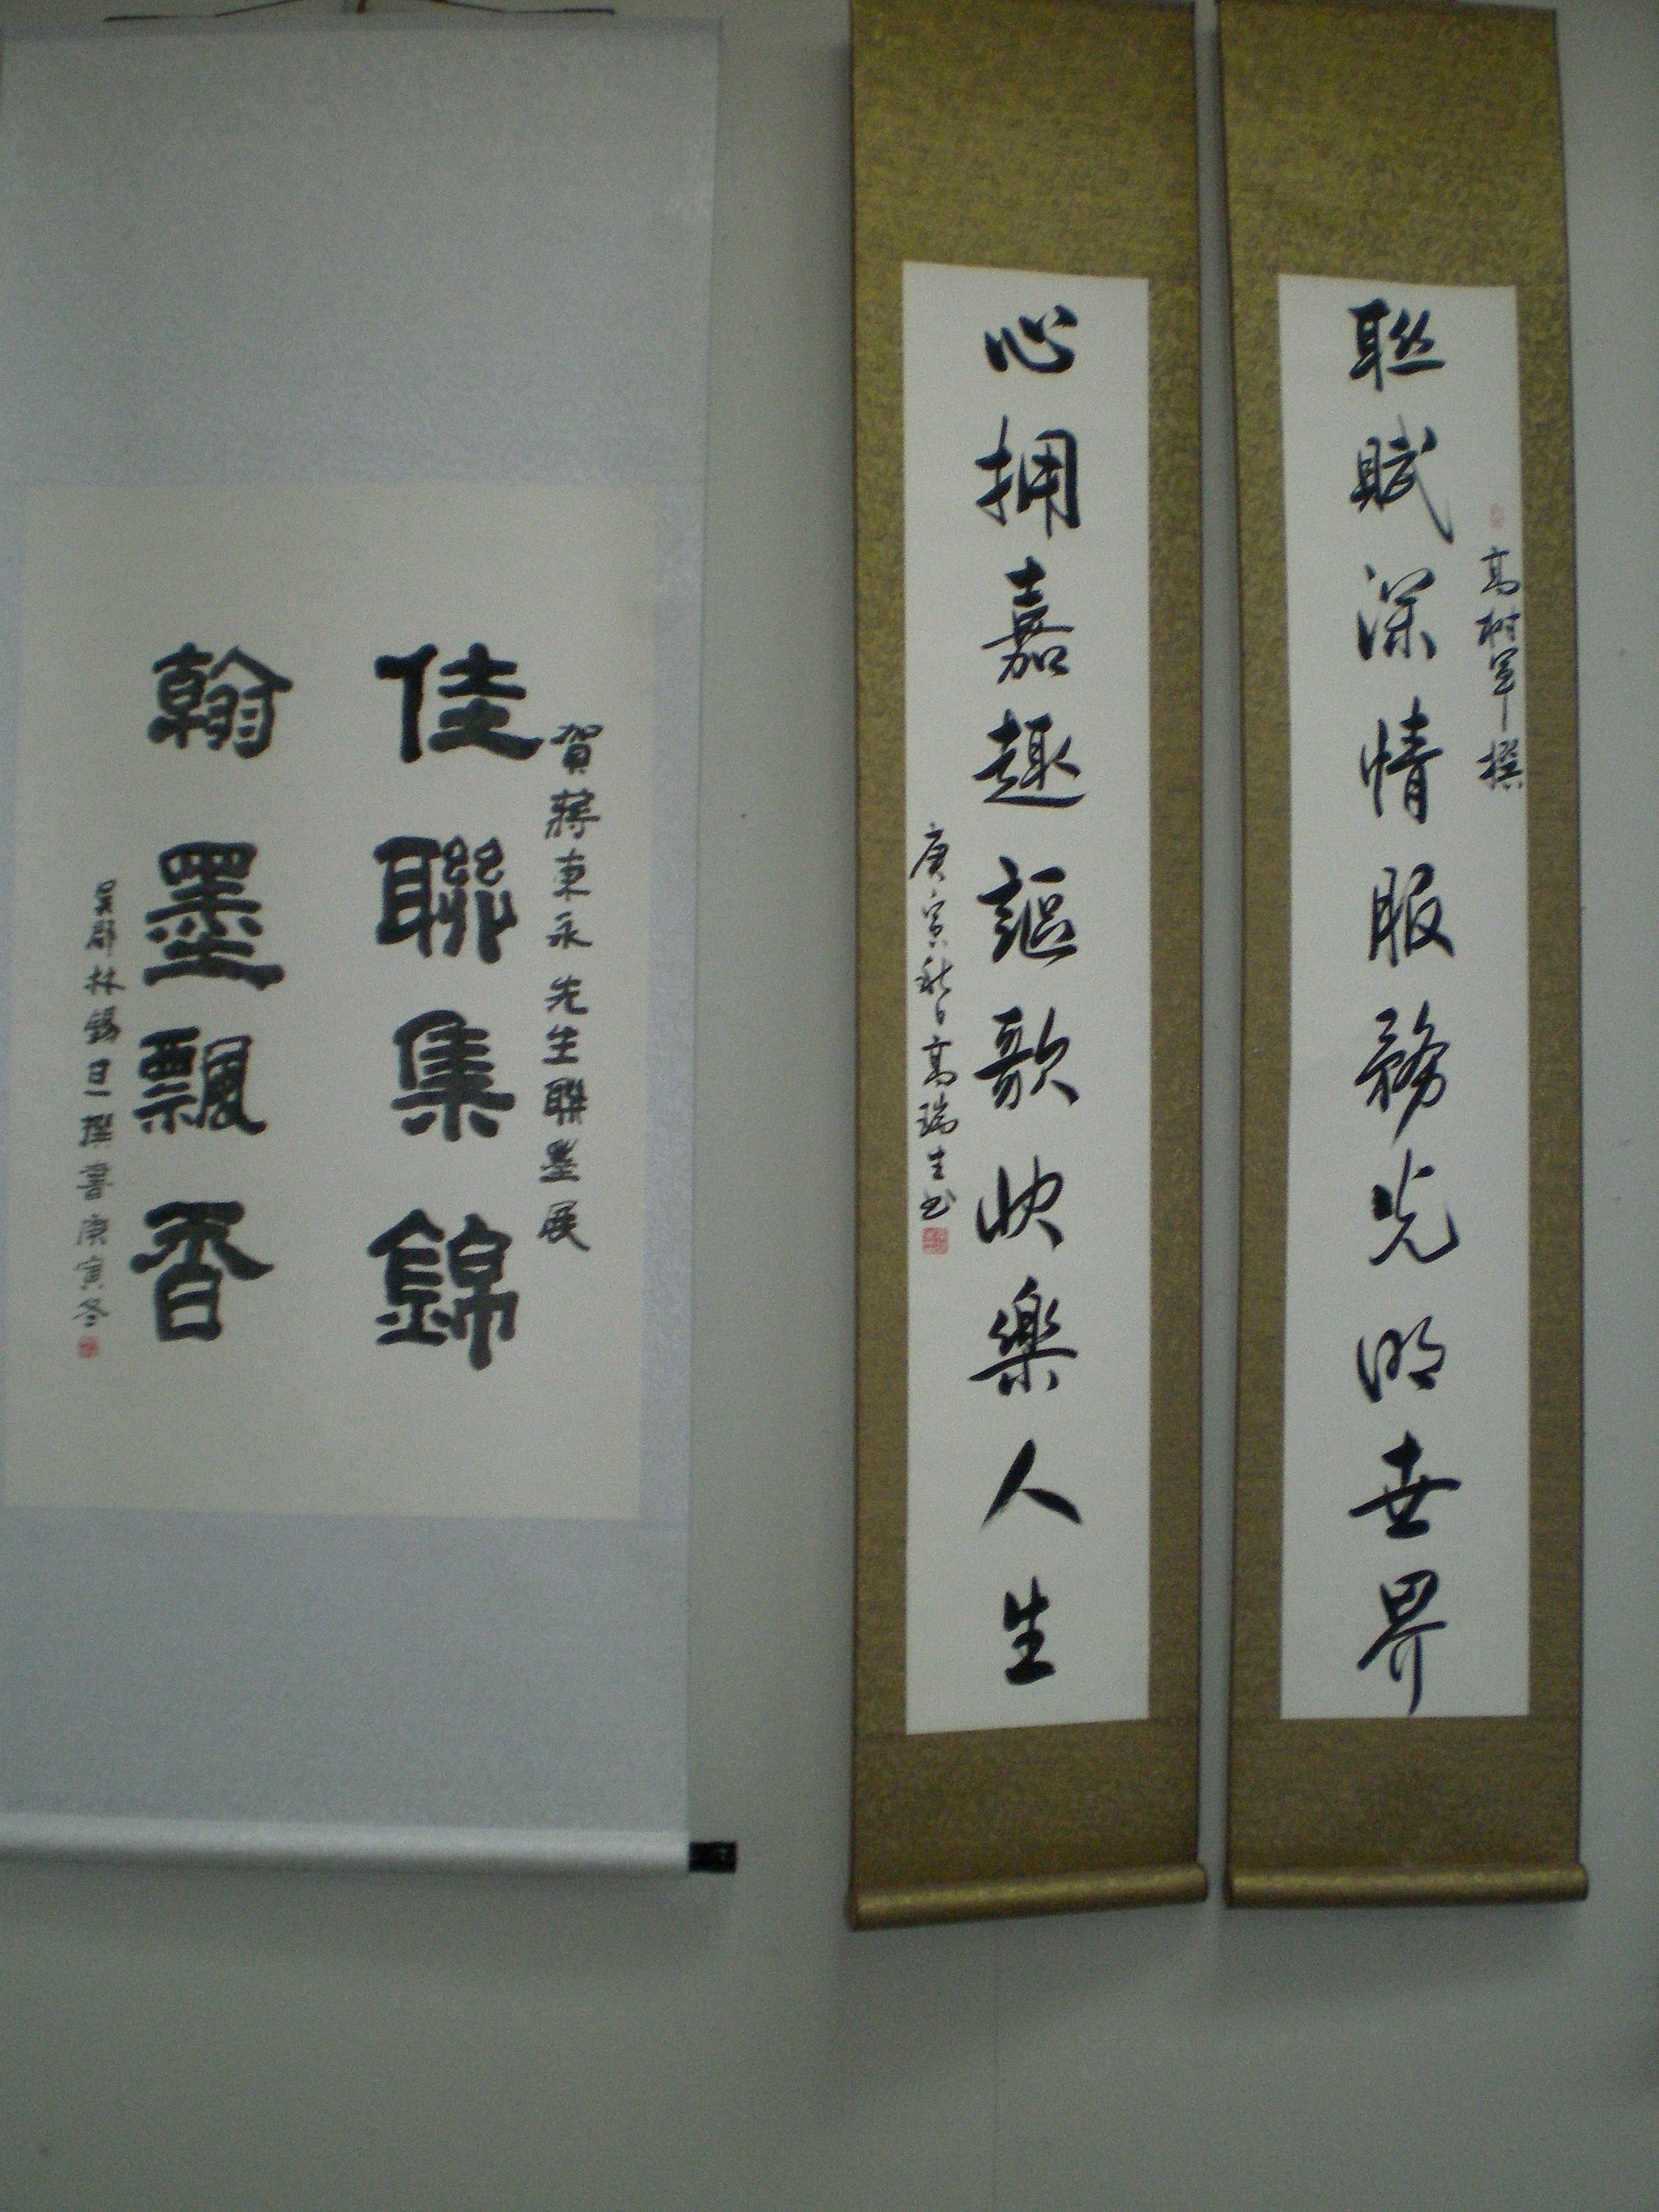 聯賦深情服務光明世界
心拥嘉趣謳歌快樂人生
庚寅秋日高瑞生书
賀蔣東永先生聯墨展
佳聯集錦
翰墨飄香
林錫旦撰書庚寅冬